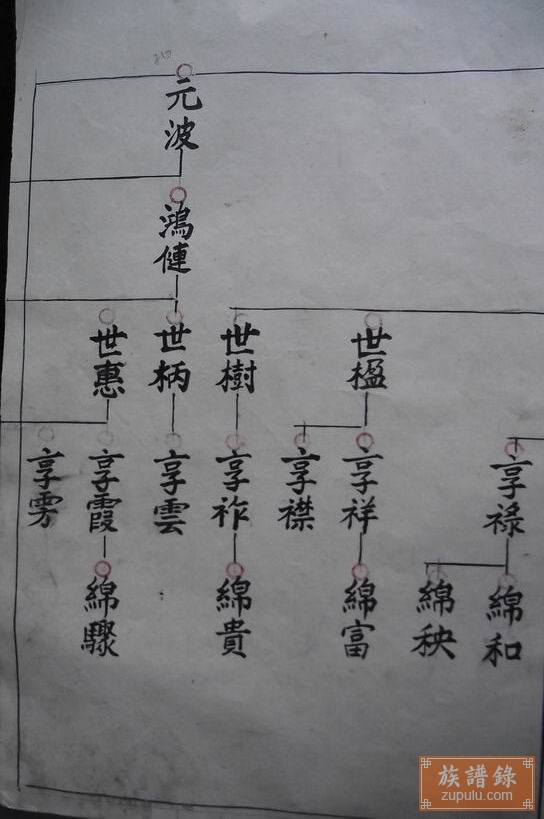 元波
鴻僆
世楹
世樹
世柄
世惠
享祿
享祥
享襟
享祚
享雲
享霞
享雱
綿和
綿秧
綿富
綿貴
綿驟
族譜錄
zupulu.com